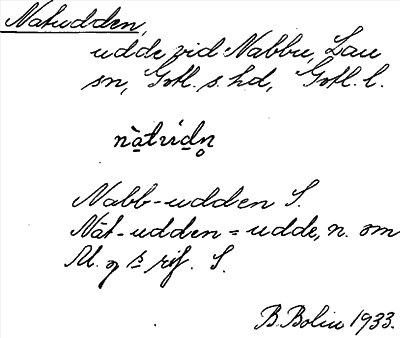 Natudden,
udde vid Nabbu, Lau
sn, Gotl. s. hd, Gotl. l.
nàtúdn̥
Nabb-udden S.
Nät-udden = udde, n. om
S.
B. Bolin 1933.